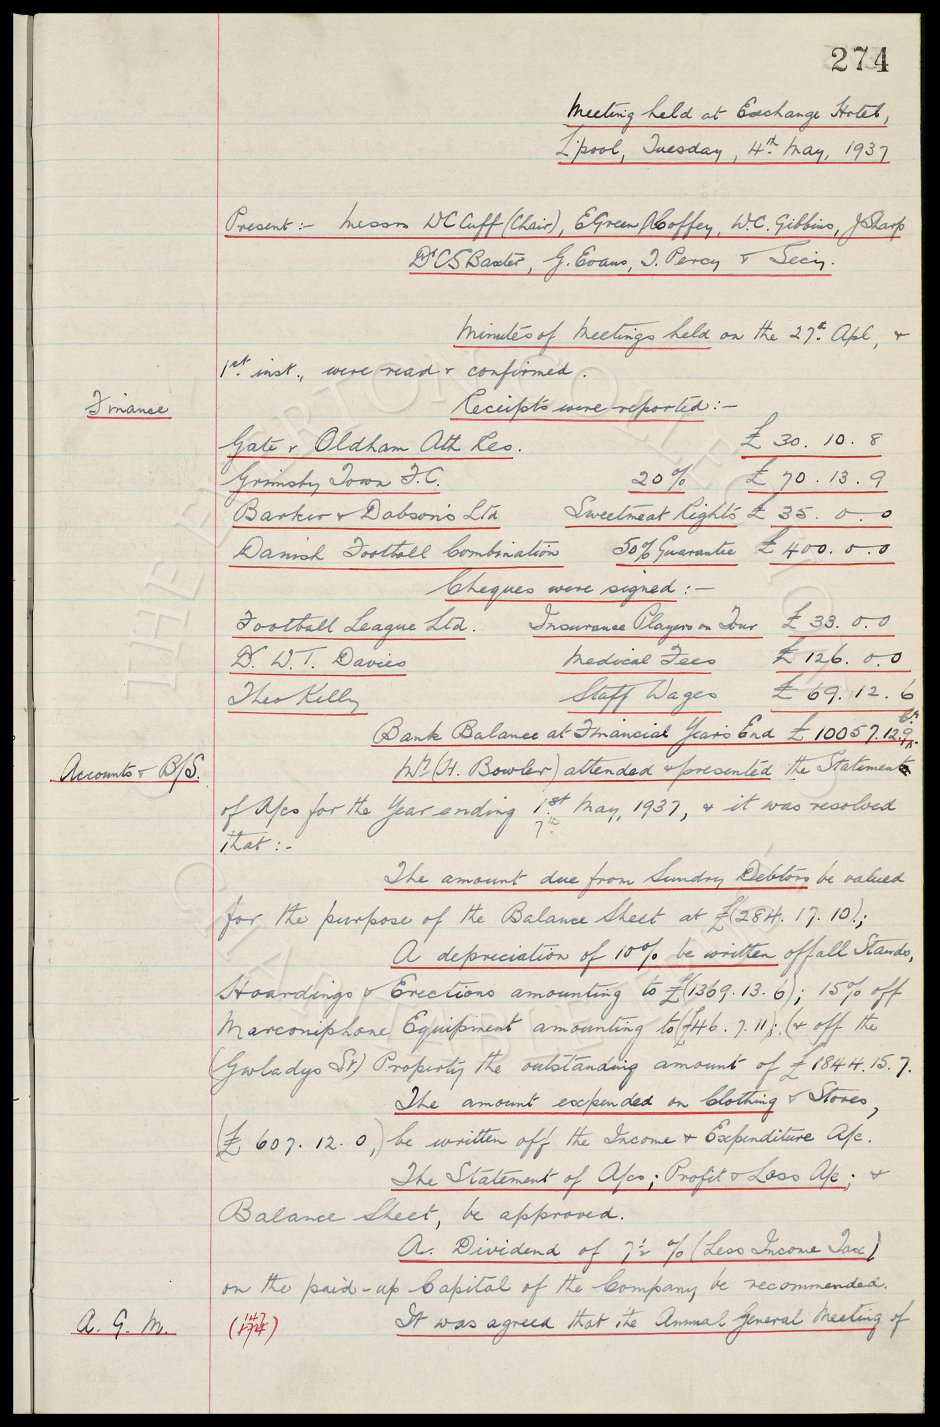 274
Meeting held at Exchange Hotel,
L'pool, Tuesday, 4th May, 1937
Present:- Messrs W C Cuff (Chair), E Green, A Coffey, W.C. Gibbins, J Sharp
Dr C S Baxter, G. Evans, T. Percy & Secy.
Minutes of Meetings held on the 27th Apl, &
1st inst., were read & confirmed.
Finance
Receipts were reported:-
Gate v Oldham Ath Res. £ 30. 10. 8
Grimsby Town F.C. 20% £ 70. 13. 9
Barker & Dobson's Ltd Sweetmeat Rights £ 35. 0. 0
Danish Football Combination 50% Guarantee £ 400. 0. 0
Cheques were signed:-
Football League Ltd. Insurance Players on Tour £ 33. 0. 0
Dr. W. T. Davies Medical Fees £ 126. 0. 0
Theo Kelly Staff Wages £ 69. 12. 6
Bank Balance at Financial Year's End £ 10057. 12. 9 Cr
Accounts & B/S.
Mr (H. Bowler) attended & presented the Statement
of A/cs for the Year ending 1st May, 1937, & it was resolved
7th
that:-
The amount due from Sundry Debtors be valued
for the purpose of the Balance Sheet at £(284. 17. 10);
A depreciation of 10% be written off all Stands,
Hoardings & Erections amounting to £(1369. 13. 6); 15% off
Marconiphone Equipment amounting to (£46. 7. 11); (& off the
(Gwladys St) Property the outstanding amount of £1844. 15. 7.
The amount expended on Clothing & Stores,
(£ 607. 12. 0,) be written off the Income & Expenditure A/c.
The Statement of A/cs; Profit & Loss A/c; &
Balance Sheet, be approved.
A. Dividend of 7½ % (Less Income Tax)
on the paid-up Capital of the Company be recommended.
A. G. M.
(147)
It was agreed that the Annual General Meeting of
THE EVERTON COLLECTION
CHARITABLE TRUST